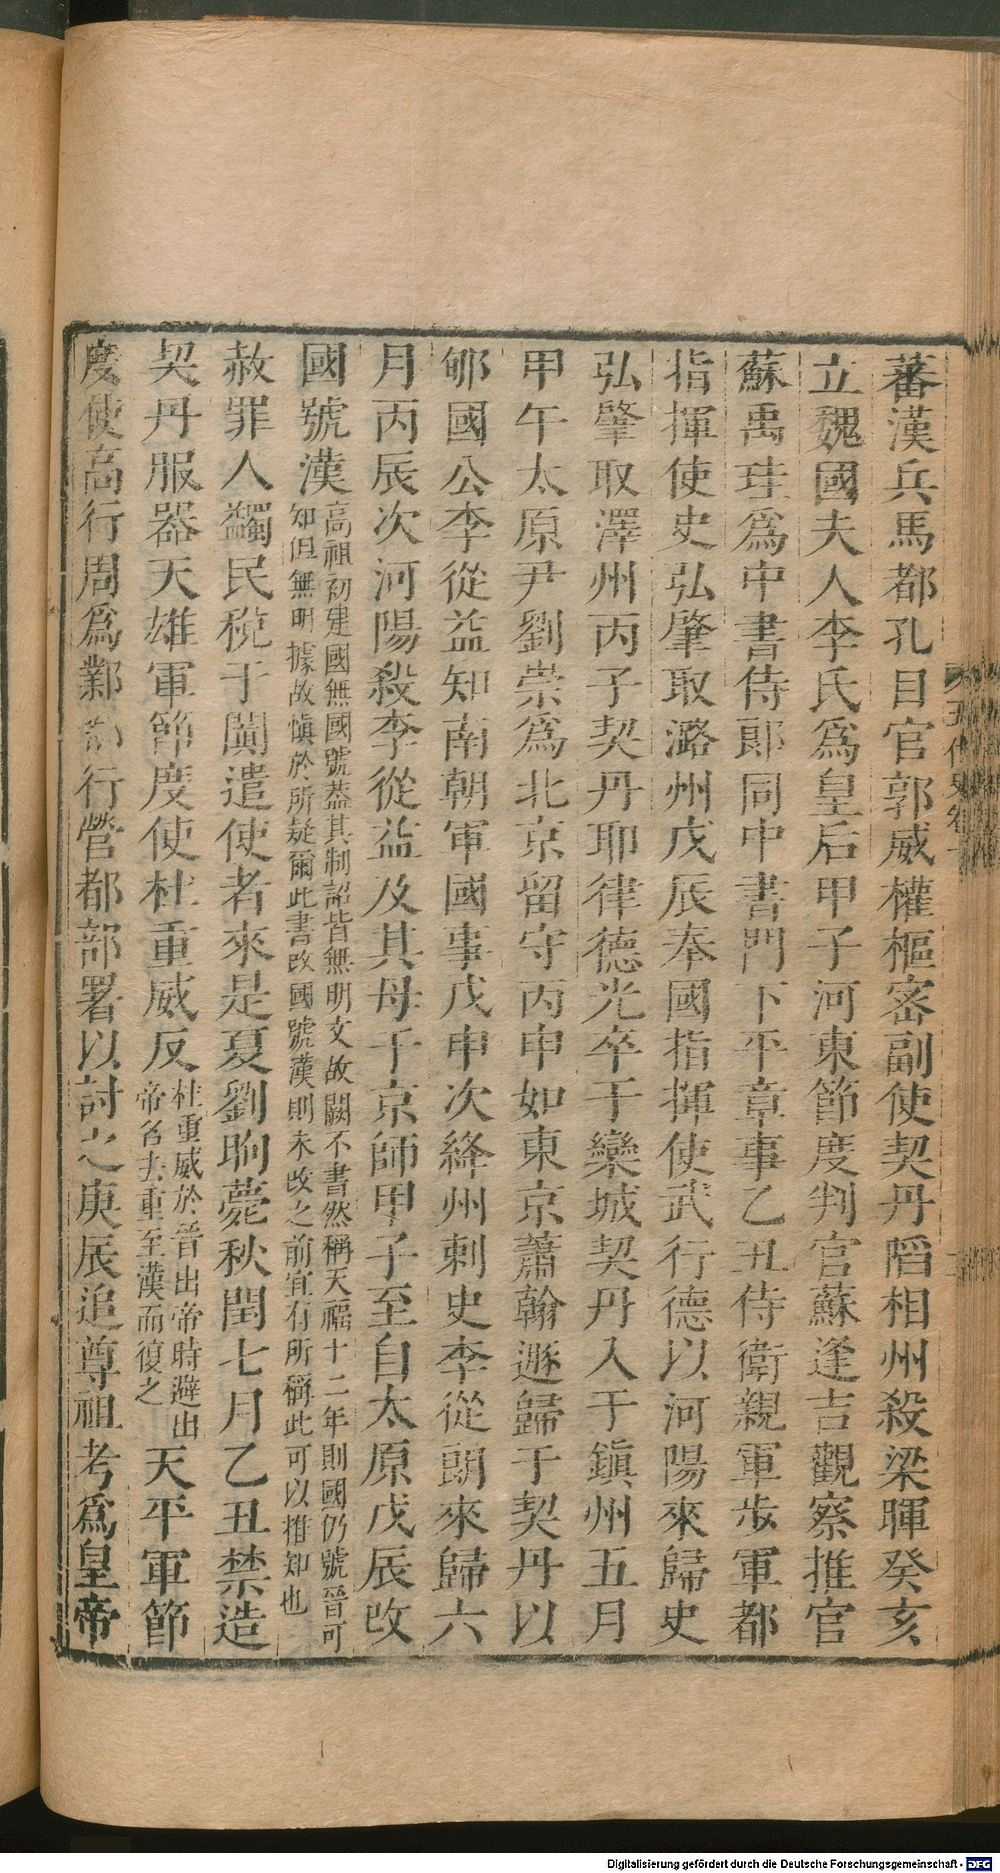 蕃漢兵馬都孔目官郭威權樞密副使契丹陷相州殺梁暉癸亥
立魏國夫人李氏爲皇后甲子河東節度判官蘇逢吉觀察推官
蘇禹珪爲中書侍郎同中書門下平章事乙丑侍衛親軍步軍都
指揮使史弘肇取潞州戊辰奉國指揮使武行德以河陽來歸史
弘肇取澤州丙子契丹耶律德光卒于欒城契丹入于鎮州五月
甲午太原尹劉崇爲北京留守丙申如東京蕭翰遯歸于契丹以
郇國公李從益知南朝軍國事戊申次絳州刺史李從朗來歸六
月丙辰次河陽殺李從益及其母于京師甲子至自太原戊辰改
國號漢
高祖初建國無國號葢其制詔皆無明文故闕不書然稱天福十二年則國仍號晉可
知但無明據故慎於所疑爾此書改國號漢則未改之前宜有所稱此可以推知也
赦罪人蠲民稅于闐遣使者來是夏劉昫薨秋閏七月乙丑禁造
契丹服器天雄軍節度使杜重威反
杜重威於晉出帝時避出
帝名去重至漢而復之
天平軍節
度使高行周爲鄴都行營都部署以討之庚辰追尊祖考爲皇帝
五代史卷十
Digitalisierung gefördert durch die Deutsche Forschungsgemeinschaft - DFG